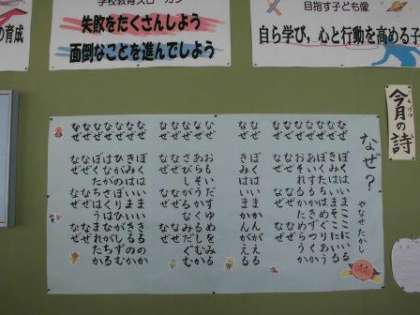 の育成
学校教育スローガン
失敗をたくさんしよう
面倒なことを進んでしよう
目指す子ども像
自ら学び，心と行動を高める子
今月の詩
なぜ？
やなせたかし
なぜ ぼくはいまここにいる
なぜ きみはいまそこにいる
なぜ ぼくたちはめぐりあう
なぜ あいすかきずつくか
なぜ おそれるかためらうか
なぜ なぜ なぜ なぜ
なぜ ぼくはいまかんがえる
なぜ きみはいまかんがえる
なぜ おもいだすゆめをみる
なぜ あらそうかくるしむか
なぜ さびしがるなみだぐむ
なぜ なぜ なぜ なぜ
なぜ ぼくはいまいきるのか
なぜ きみはいまいきるのか
なぜ ひがのぼるひがしずむ
なぜ はながさくはながちる
なぜ ぼくたちはうまれたか
なぜ なぜ なぜ なぜ